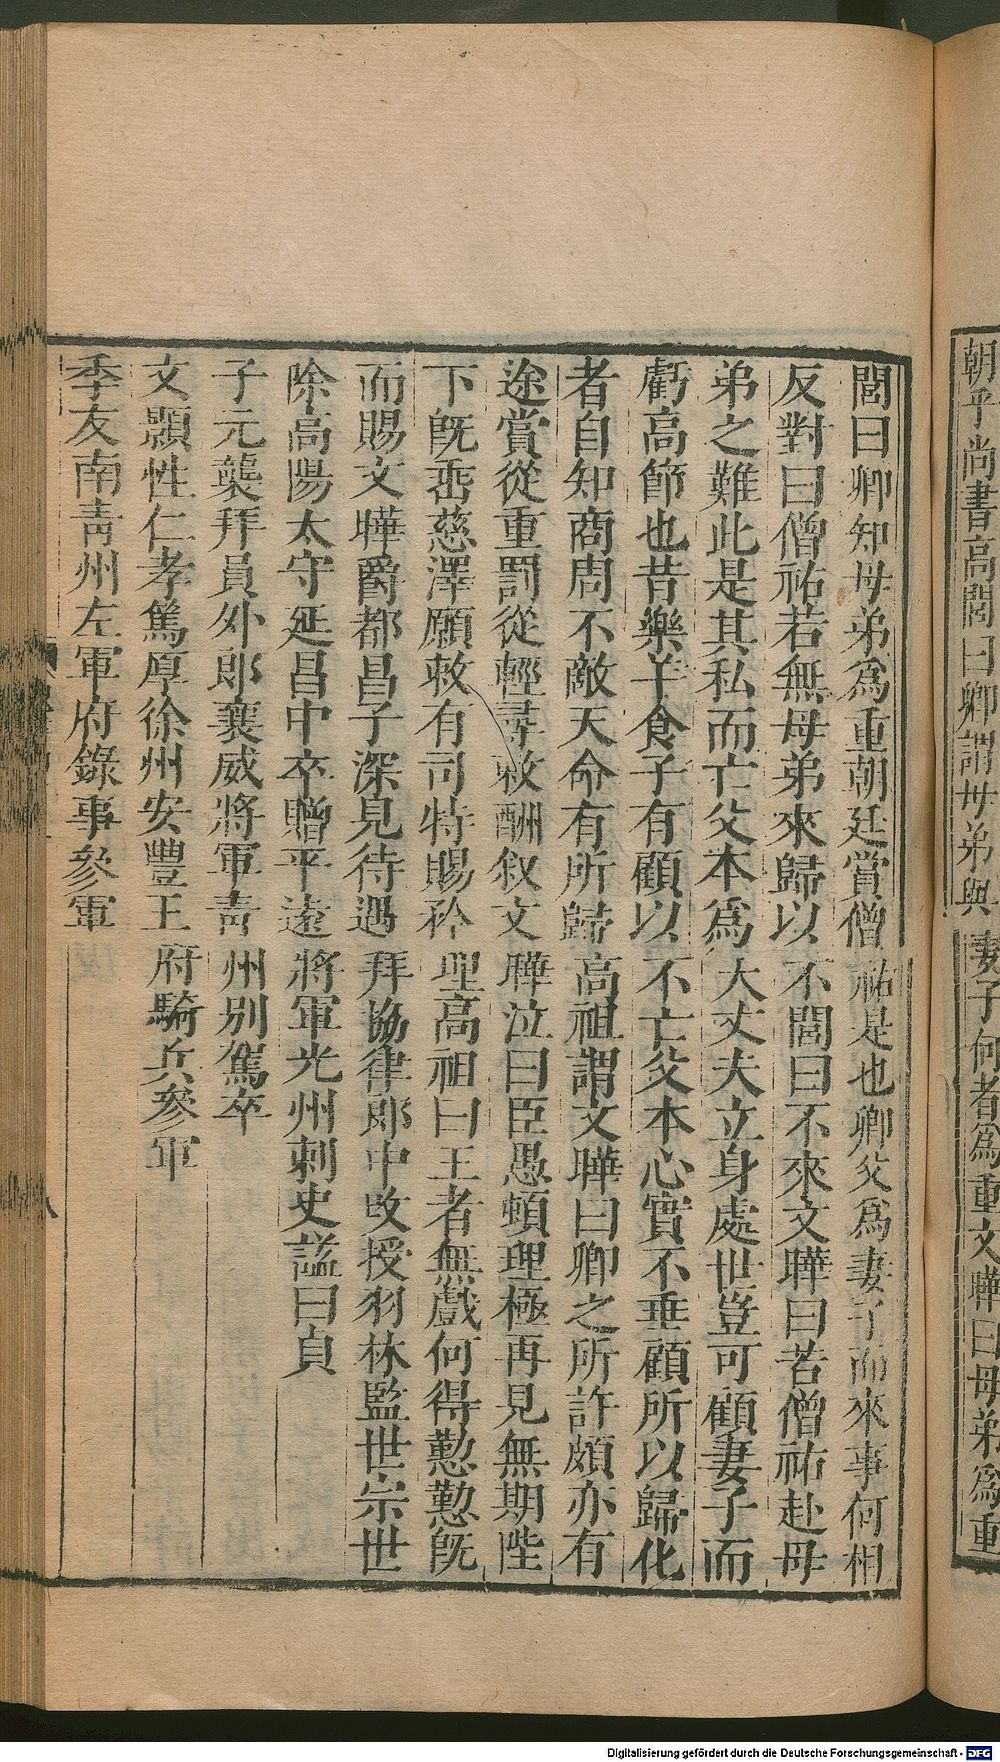 朝乎尚書高閭曰卿謂母弟與妻子何者爲重文曄曰母弟爲重
閭曰卿知母弟爲重朝廷賞僧祐是也卿父爲妻子而來事何相
反對曰僧祐若無母弟來歸以不閭曰不來文曄曰若僧祐赴母
弟之難此是其私而亡父本爲大丈夫立身處世豈可顧妻子而
虧高節也昔樂羊食子有顧以不亡父本心實不垂顧所以歸化
者自知商周不敵天命有所歸高祖謂文曄曰卿之所許頗亦有
途賞從重罰從輕尋敕酬叙文曄泣曰臣愚頓理極再見無期陛
下旣垂慈澤願敕有司特賜矜理高祖曰王者無戲何得懃懃旣
而賜文曄爵都昌子深見待遇拜協律郎中改授羽林監世宗世
除高陽太守延昌中卒贈平遠將軍光州刺史謚曰貞
子元襲拜員外郎襄威將軍青州别駕卒
文顯性仁孝篤厚徐州安豐王府騎兵參軍
季友南青州左軍府錄事參軍
八
Digitalisierung gefördert durch die Deutsche Forschungsgemeinschaft - DFG